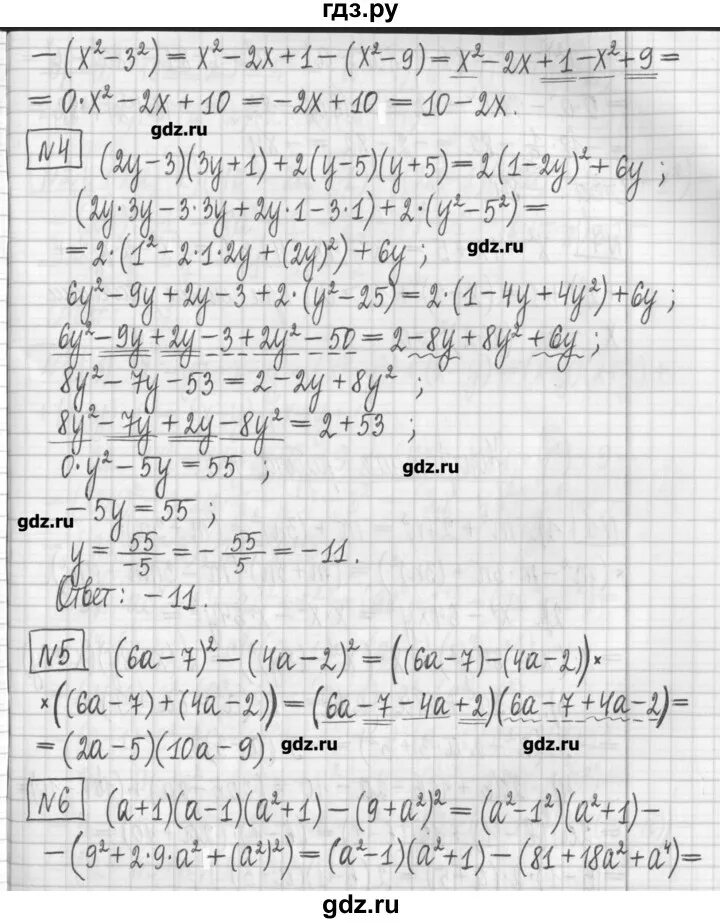 гдз.ру
− (x² − 3²) = x² − 2x + 1 − (x² − 9) = x² − 2x + 1 − x² + 9 =
= 0·x² − 2x + 10 = −2x + 10 = 10 − 2x.
gdz.ru
N4 (2y − 3)(3y + 1) + 2(y − 5)(y + 5) = 2(1 − 2y)² + 6y ;
(2y·3y − 3·3y + 2y·1 − 3·1) + 2·(y² − 5²) =
= 2·(1² − 2·1·2y + (2y)²) + 6y ;
gdz.ru
6y² − 9y + 2y − 3 + 2·(y² − 25) = 2·(1 − 4y + 4y²) + 6y ;
6y² − 9y + 2y − 3 + 2y² − 50 = 2 − 8y + 8y² + 6y ;
8y² − 7y − 53 = 2 − 2y + 8y² ;
8y² − 7y + 2y − 8y² = 2 + 53 ;
0·y² − 5y = 55 ;
gdz.ru
− 5y = 55 ;
gdz.ru
y = 55/−5 = − 55/5 = −11.
Ответ: −11.
N5 (6a − 7)² − (4a − 2)² = ((6a − 7) − (4a − 2)) ×
× ((6a − 7) + (4a − 2)) = (6a − 7 − 4a + 2)(6a − 7 + 4a − 2) =
= (2a − 5)(10a − 9).
gdz.ru
gdz.ru
N6 (a + 1)(a − 1)(a² + 1) − (9 + a²)² = (a² − 1²)(a² + 1) −
− (9² + 2·9·a² + (a²)²) = (a² − 1)(a² + 1) − (81 + 18a² + a⁴) =
gdz.ru